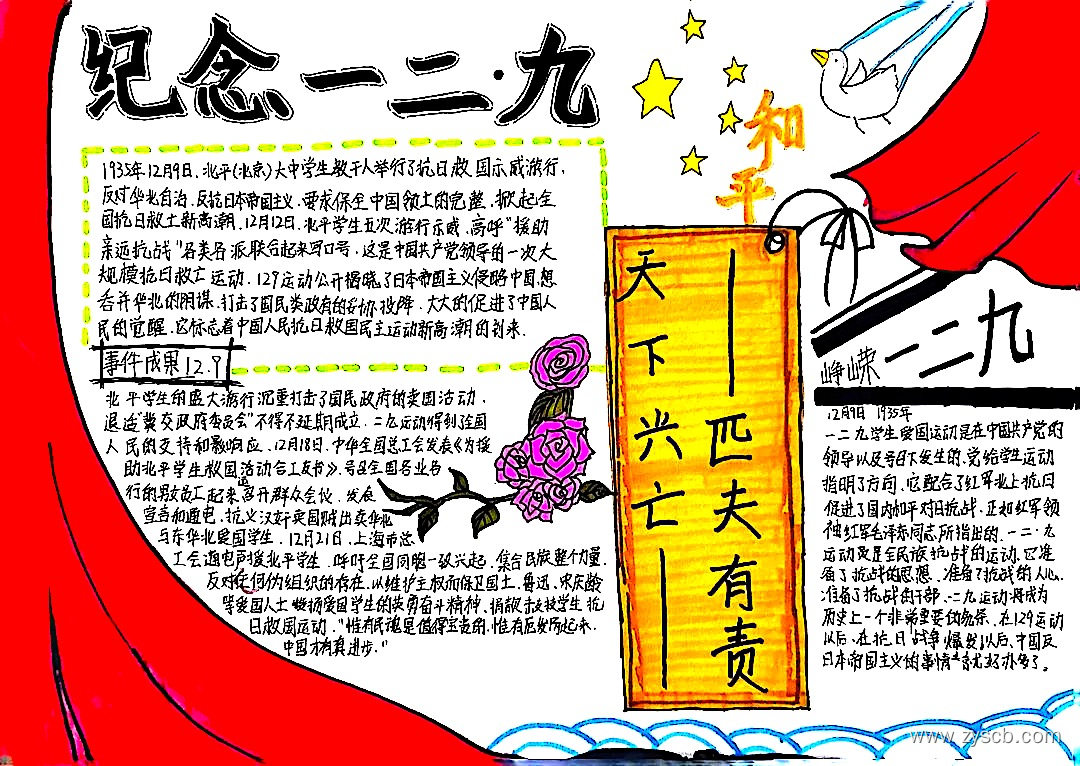 纪念一二·九
和
平
1935年12月9日,北平(北京)大中学生数千人举行了抗日救国示威游行,
反对华北自治,反抗日本帝国主义,要求保全中国领土的完整,掀起全
国抗日救土新高潮,12月12日,北平学生五次游行示威,高呼"援助
亲远抗战"各类各派联合起来写口号,这是中国共产党领导的一次大
规模抗日救亡运动,129运动公开揭晓了日本帝国主义侵略中国,想
吞并华北的阴谋,打击了国民类政府的妥协投降,大大的促进了中国人
民的觉醒,它标志着中国人民抗日救国民主运动新高潮的到来.
事件成果12.9
北平学生的盛大游行沉重打击了国民政府的卖国活动,
退适"冀交政府委员会"不得不延期成立,二九运动得到全国
人民的支持和影响应,12月18日,中华全国总工会发表《为援
助北平学生救国活动合工友书》,号召全国各业各
行的男女员工起来召开群众会议,发表
宣言和通电,抗义汉奸卖国贼出卖华北
与东华北爱国学生,12月21日,上海市总
工会通电声援北平学生,呼吁全国同胞一致兴起,集合民族整个力量,
反对任何伪组织的存在,以维护主权而保卫国土,鲁迅、宋庆龄
等爱国人士 赞扬爱国学生的英勇奋斗精神,捐款支援学生抗
日救国运动,"惟有民魂是值得宝贵的,惟有他发扬起来,
中国才有真进步."
天下兴亡——
——匹夫有责
峥嵘一二九
12月9日 1935年
一二九学生爱国运动是在中国共产党的
领导以及号召下发生的,党给学生运动
指明了方向,它配合了红军北上抗日
促进了国内和平对日抗战,正如红军领
袖红军毛泽东同志所指出的,一二·九
运动是全民族抗战的运动,它准
备了抗战的思想,准备了抗战的人心,
准备了抗战的干部,一二九运动将成为
历史上一个非常重要的纪念,在129运动
以后,在抗日战争爆发以后,中国反
日本帝国主义的事情就好办多了.
www.zyscb.com